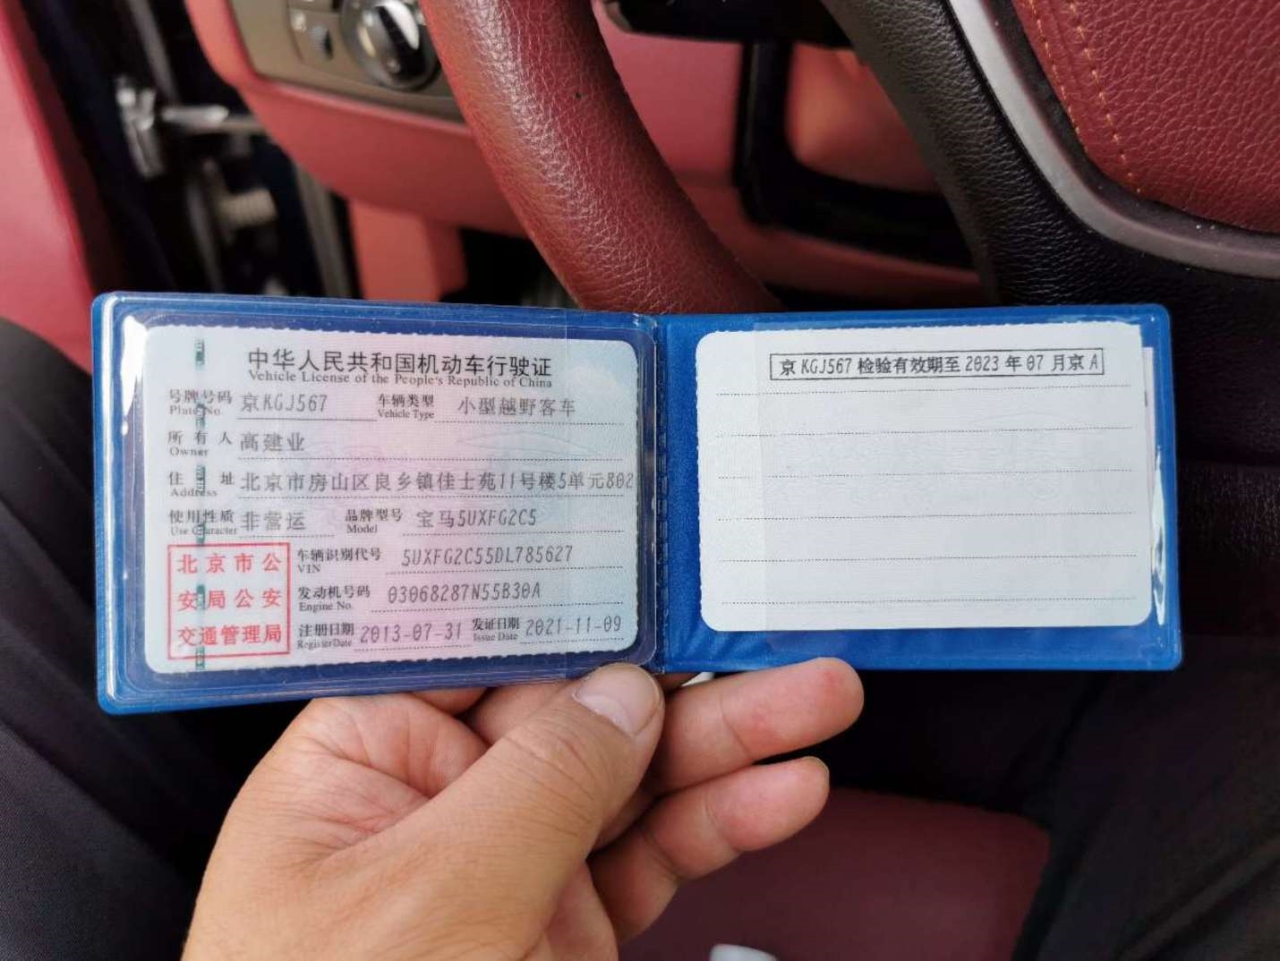 中华人民共和国机动车行驶证
Vehicle License of the People's Republic of China
号牌号码 京KGJ567 车辆类型 小型越野客车
Plate No. Vehicle Type
所有人 高建业
Owner
住址 北京市房山区良乡镇佳士苑11号楼5单元802
Address
使用性质 非营运 品牌型号 宝马5UXFG2C5
Use Character Model
北京市公
安局公安
交通管理局
车辆识别代号 5UXFG2C55DL785627
VIN
发动机号码 03068287N55B30A
Engine No.
注册日期 2013-07-31 发证日期 2021-11-09
Register Date Issue Date
京KGJ567 检验有效期至 2023 年 07 月京A